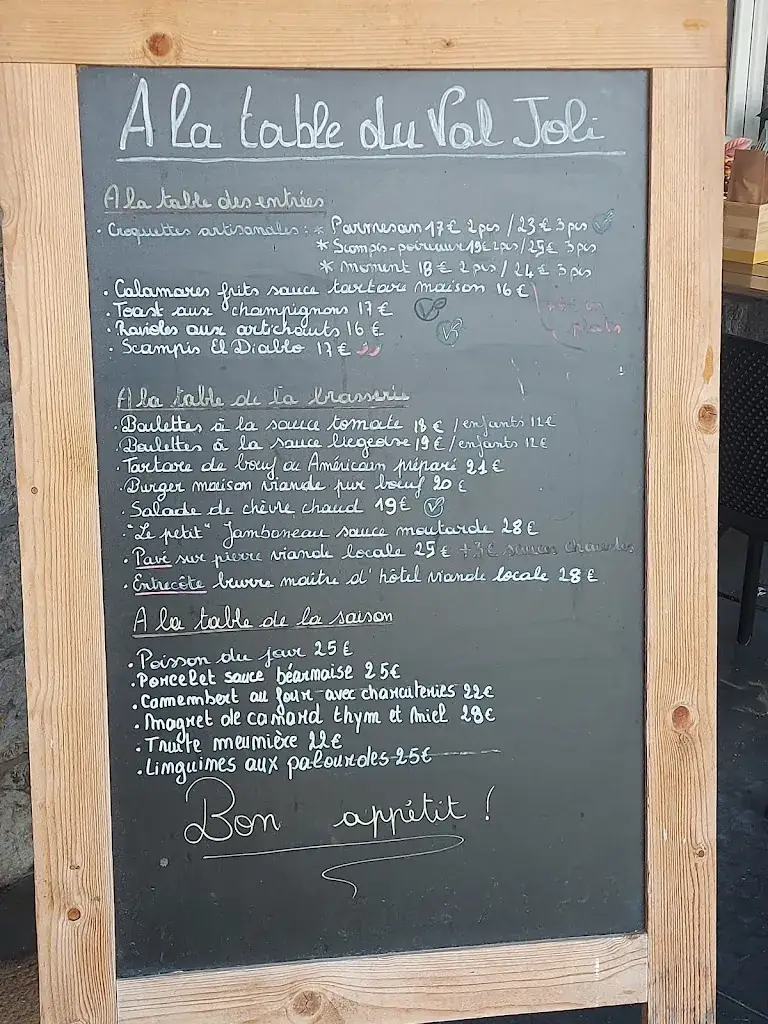 A la table du Val Joli
A la table des entrées
• Croquettes artisanales : * Parmesan 17€ 2pcs / 23€ 3pcs
* Scampis-poireaux 19€ 2pcs / 25€ 3pcs
* Moment 18€ 2pcs / 24€ 3pcs
• Calamares frits sauce tartare maison 16€
• Toast aux champignons 17€
• Ravioles aux artichauts 16€
• Scampis El Diablo 17€
plats
A la table de la brasserie
• Boulettes à la sauce tomate 18€ / enfants 12€
• Boulettes à la sauce liegeoise 19€ / enfants 12€
• Tartare de bœuf ou Américain préparé 21€
• Burger maison viande pur bœuf 20€
• Salade de chèvre chaud 19€
• "Le petit" Jambonneau sauce moutarde 28€
• Pavé sur pierre viande locale 25€ +3€ sauces chaudes
• Entrecôte beurre maître d'hôtel viande locale 28€
A la table de la saison
• Poisson du jour 25€
• Porcelet sauce béarnaise 25€
• Camembert au four avec charcuteries 22€
• Magret de canard thym et miel 28€
• Truite meunière 22€
• Linguines aux palourdes 25€
Bon appétit !